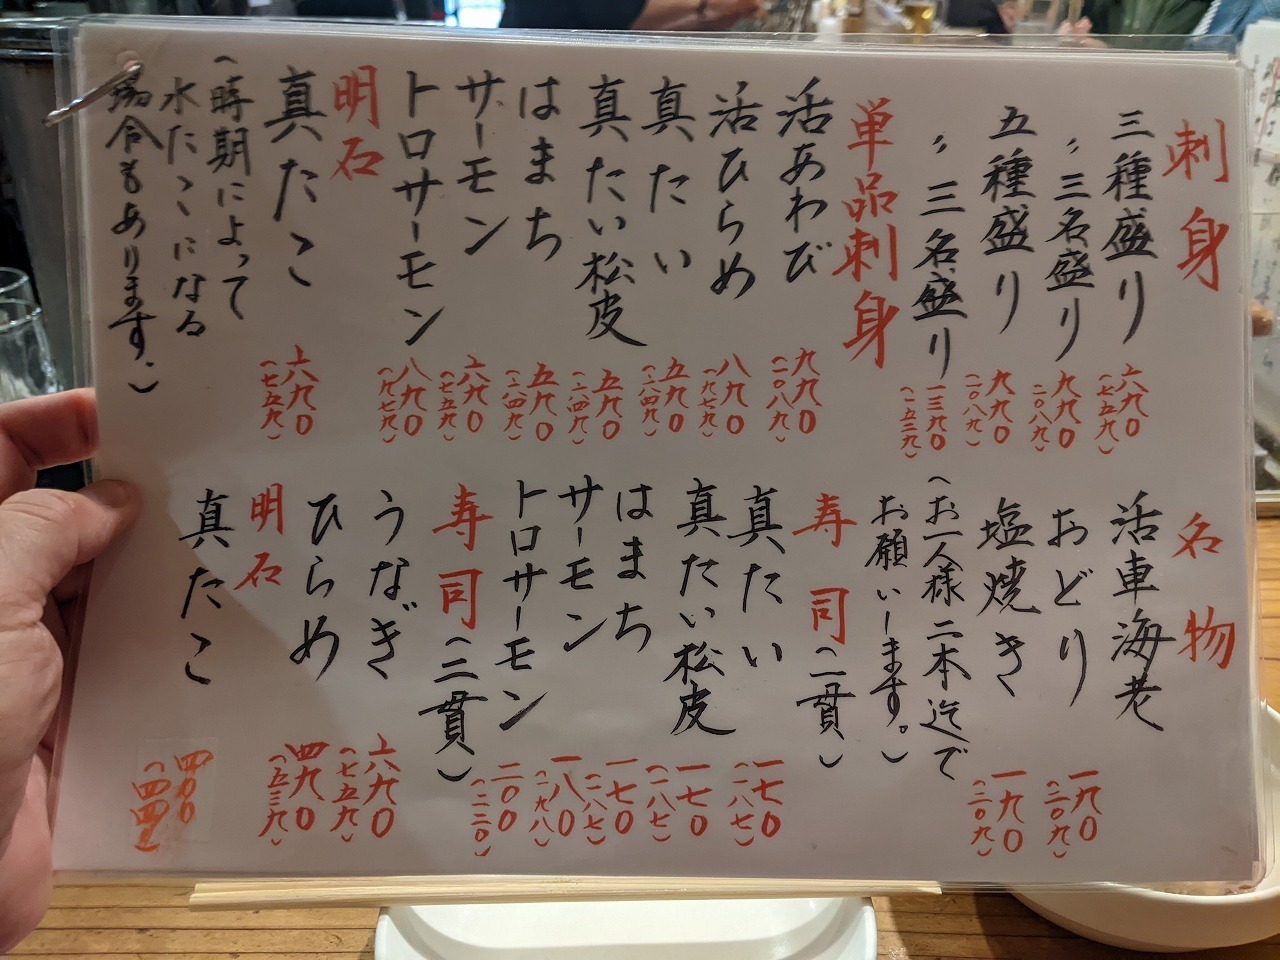 刺身
三種盛り 六九〇 (七五九)
〃三名盛り 九九〇 (一〇八九)
五種盛り 九九〇 (一〇八九)
〃三名盛り 一三九〇 (一五二九)
単品刺身
活あわび 九九〇 (一〇八九)
活ひらめ 八九〇 (九七九)
真たい 五九〇 (六四九)
真たい松皮 五九〇 (六四九)
はまち 五九〇 (六四九)
サーモン 六九〇 (七五九)
トロサーモン 八九〇 (九七九)
明石
真たこ 六九〇 (七五九)
(時期によって
水たこになる
場合もあります。)
名物
活車海老
おどり 一九〇 (二〇九)
塩焼き 一九〇 (二〇九)
(お一人様二本迄で
お願いします。)
寿司(二貫)
真たい 一七〇 (一八七)
真たい松皮 一七〇 (一八七)
はまち 一七〇 (一八七)
サーモン 一八〇 (一九八)
トロサーモン 二〇〇 (二二〇)
寿司(三貫)
うなぎ 六九〇 (七五九)
ひらめ 四九〇 (五三九)
明石
真たこ